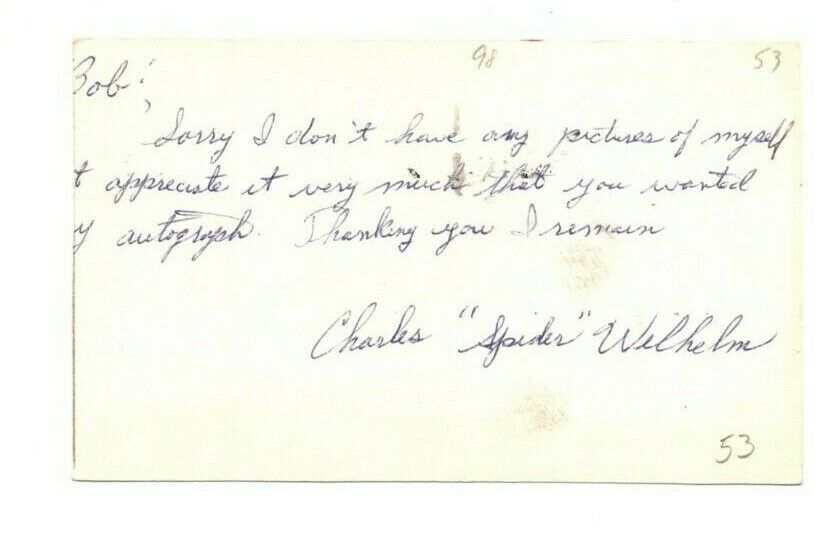 98 53
Bob:
Sorry I don't have any pictures of myself
t appreciate it very much that you wanted
y autograph. Thanking you I remain
Charles "Spider" Wilhelm
53